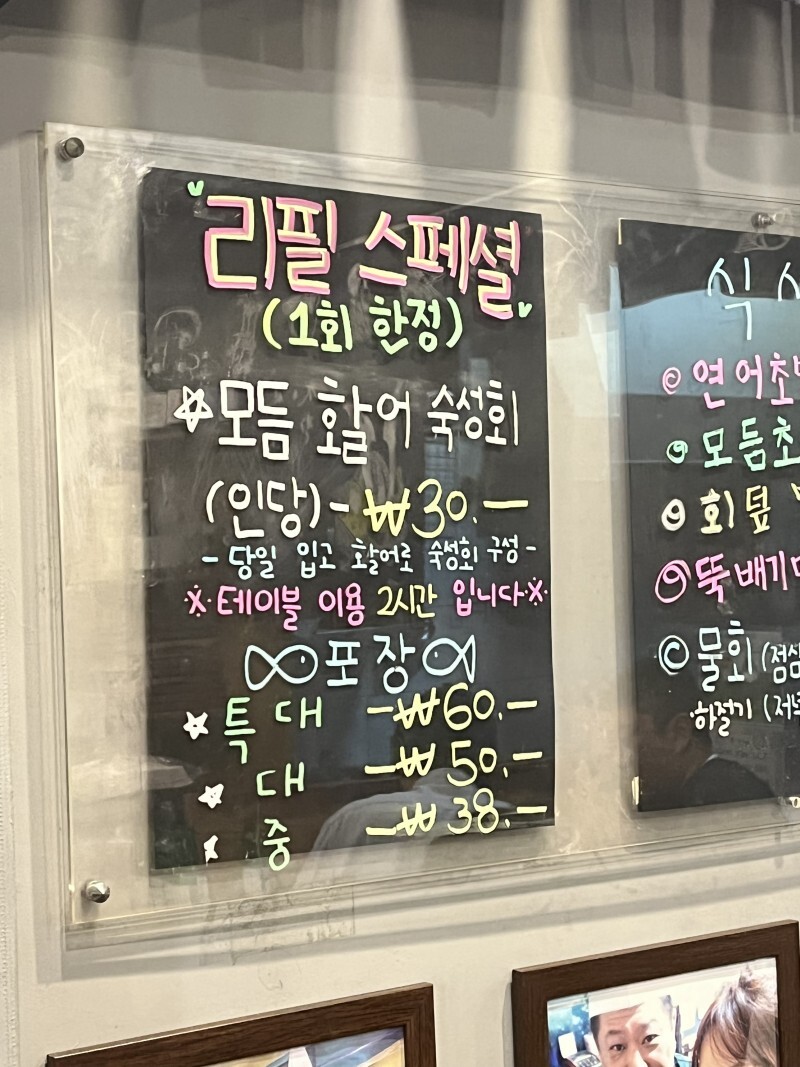 리필 스페셜
(1회 한정)
모듬 활어 숙성회
(인당) - ₩30.-
- 당일 입고 활어로 숙성회 구성 -
※테이블 이용 2시간 입니다※
포장
특대 -₩60.-
대 -₩50.-
중 -₩38.-
식
연어초
모듬초
회덮
뚝배기
물회 (점심
하절기 (저녁